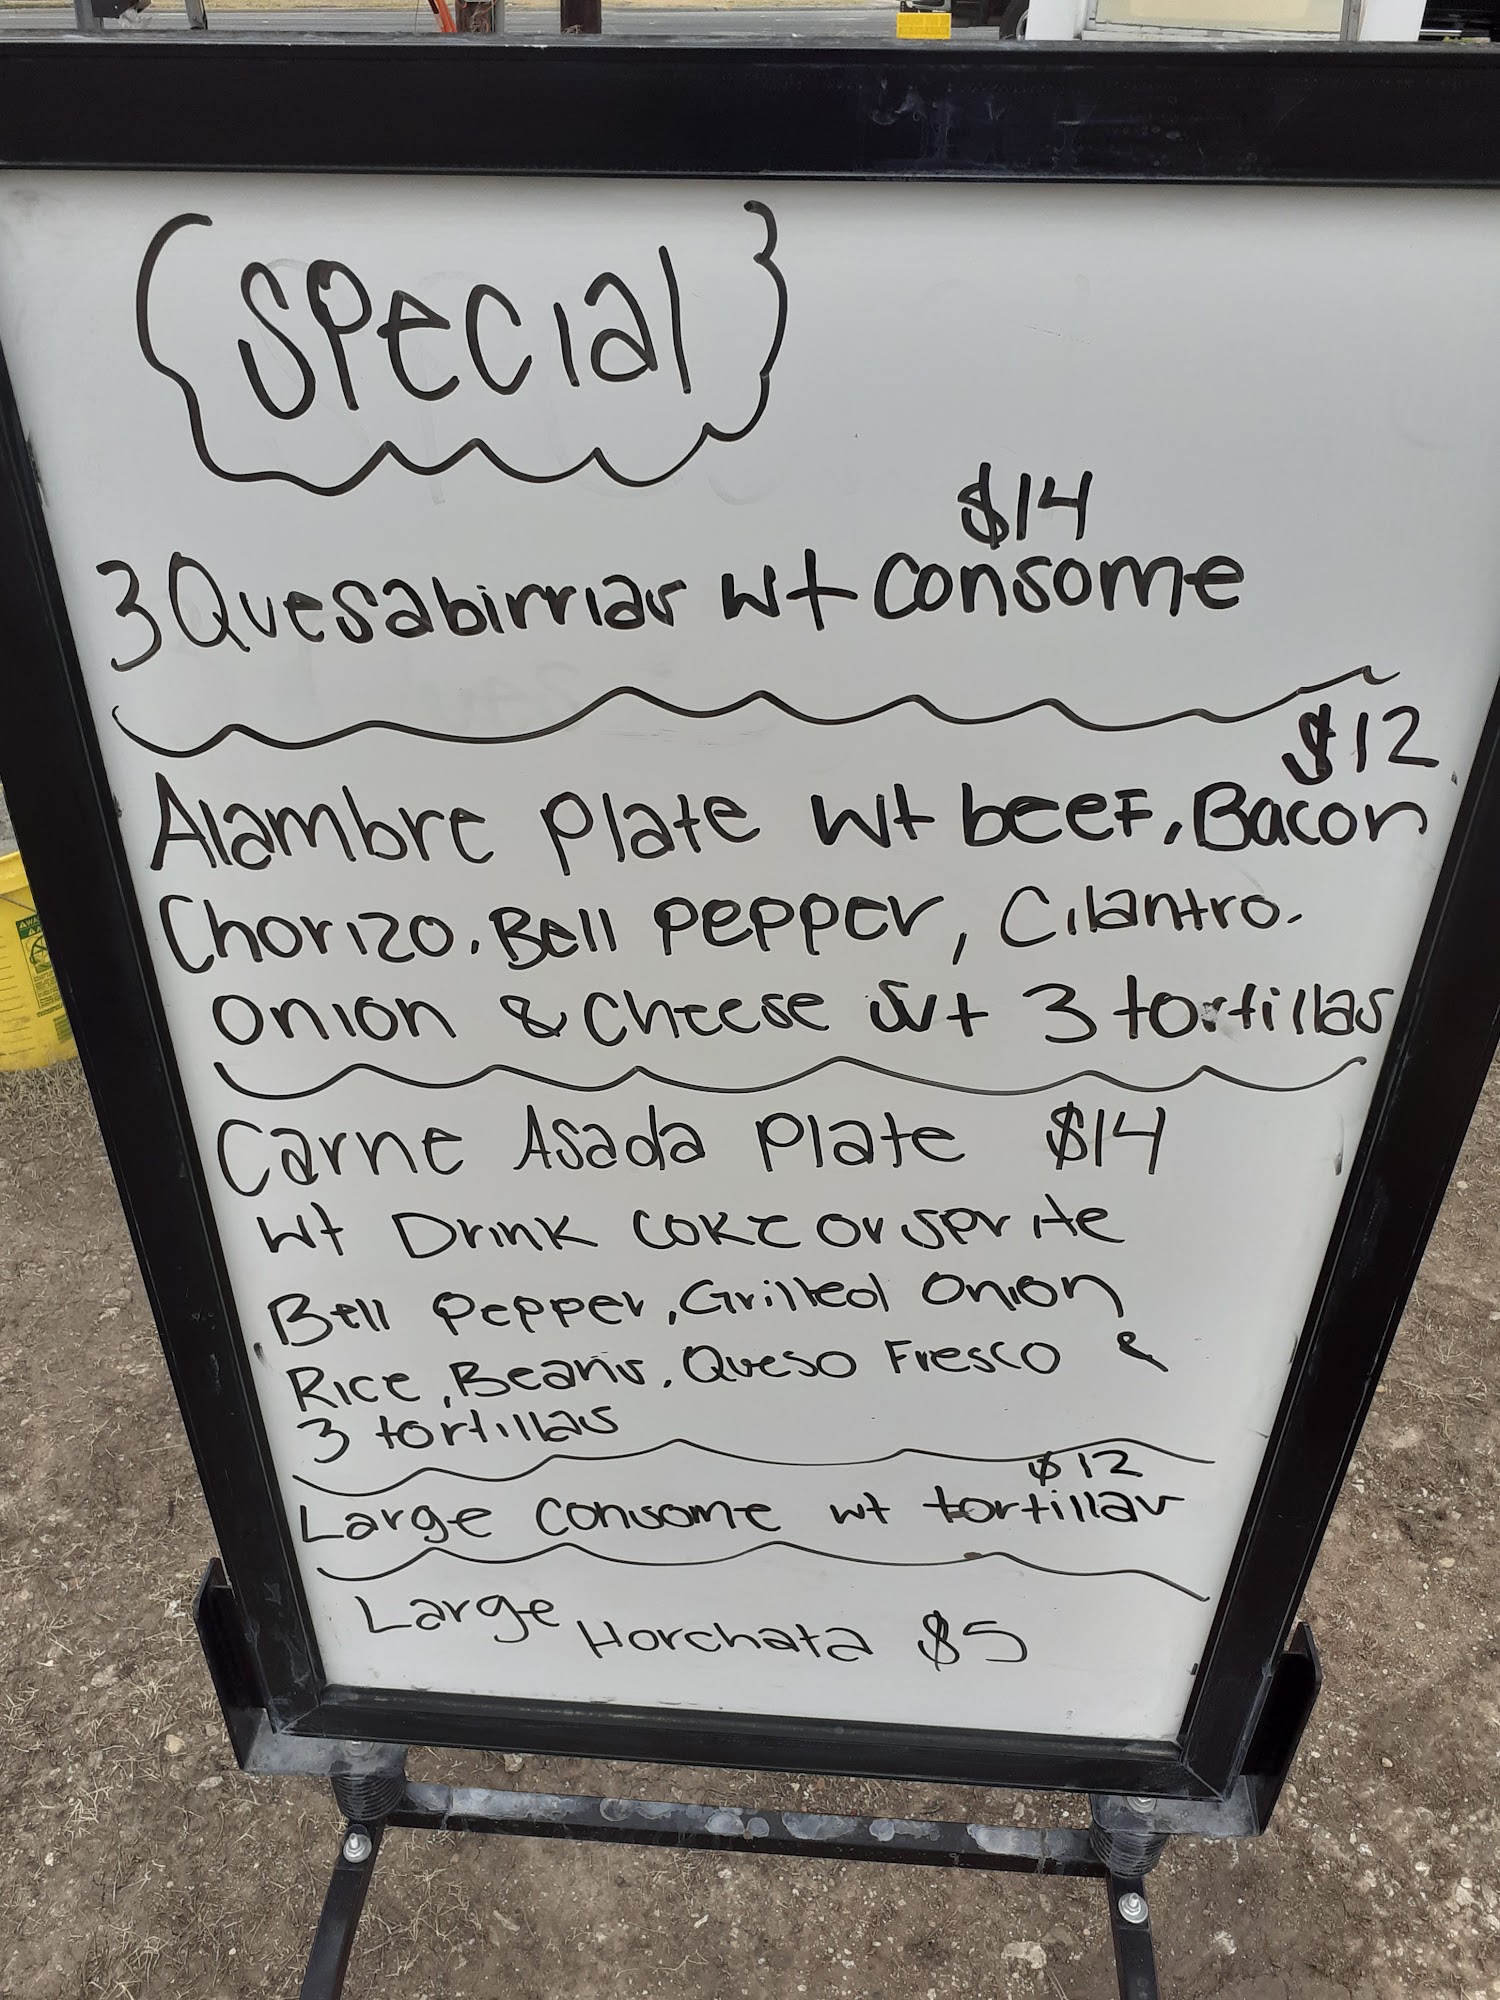 Special
$14
3 Quesabirrias wt Consome
$12
Alambre Plate wt beef, Bacon
Chorizo, Bell Pepper, Cilantro,
Onion & Cheese wt 3 tortillas
Carne Asada Plate $14
wt Drink Coke or Sprite
Bell Pepper, Grilled Onion
Rice, Beans, Queso Fresco &
3 tortillas
$12
Large Consome wt tortillas
Large Horchata $5